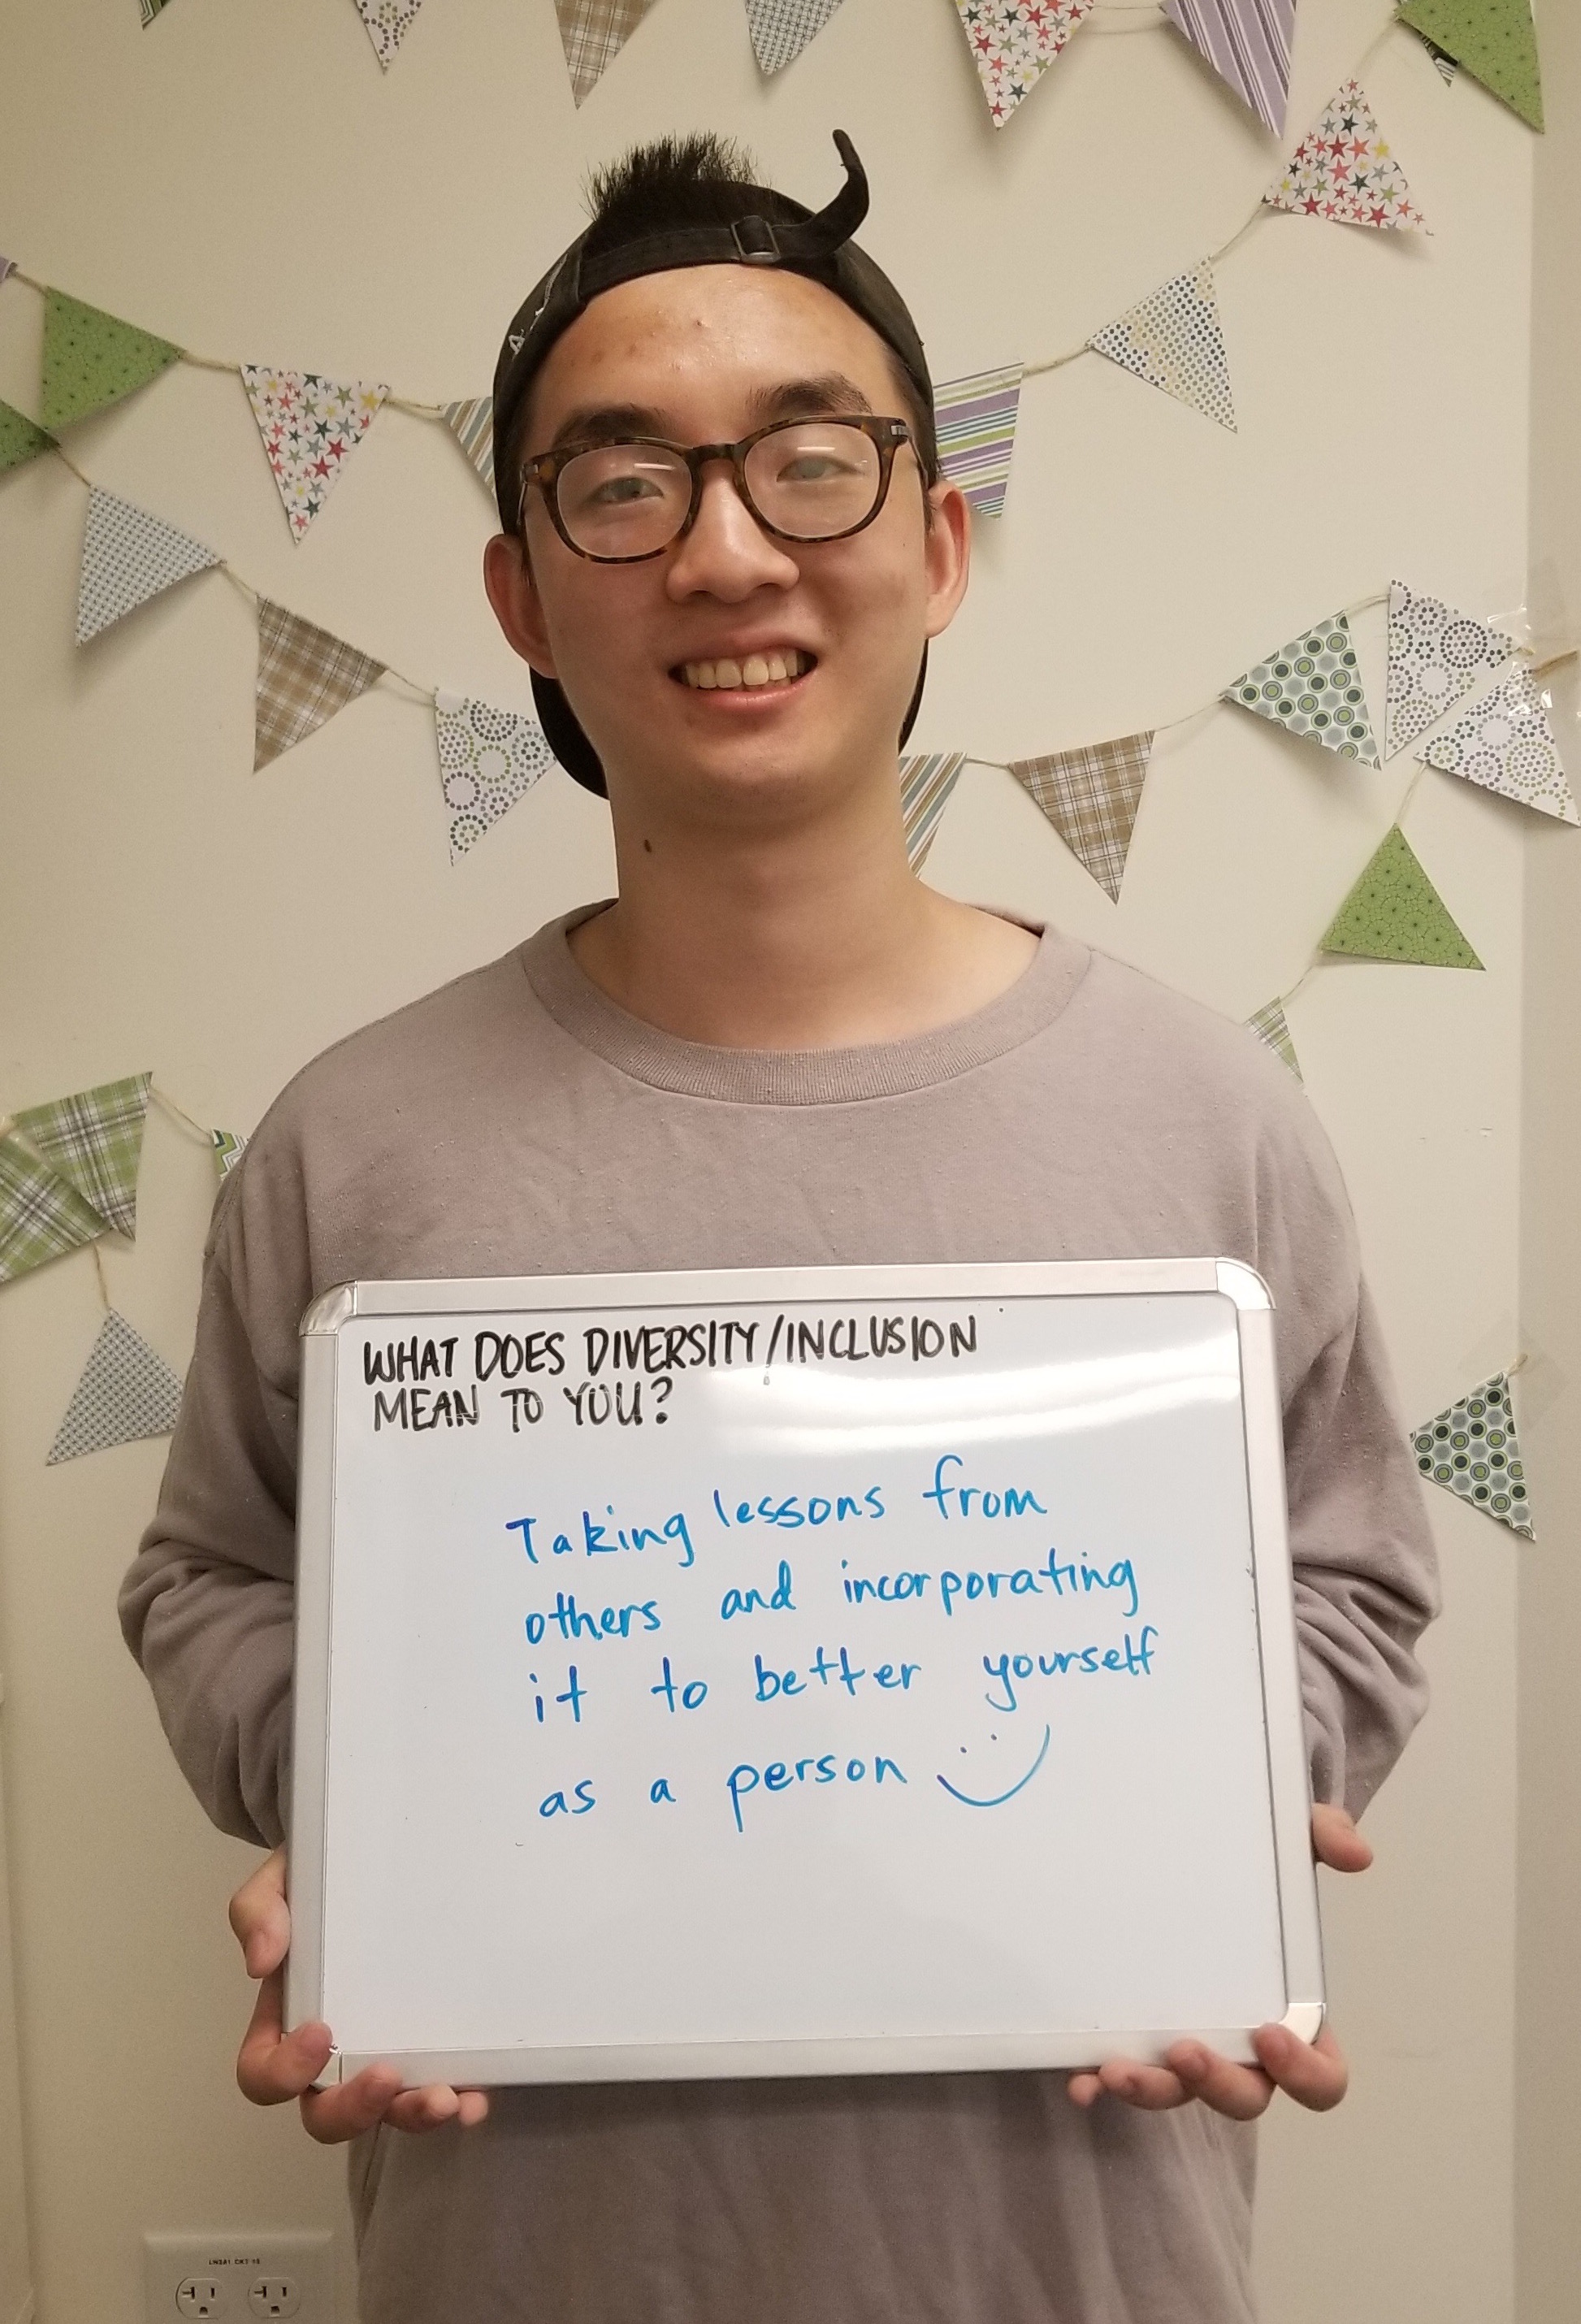 WHAT DOES DIVERSITY/INCLUSION
MEAN TO YOU?
Taking lessons from
others and incorporating
it to better yourself
as a person